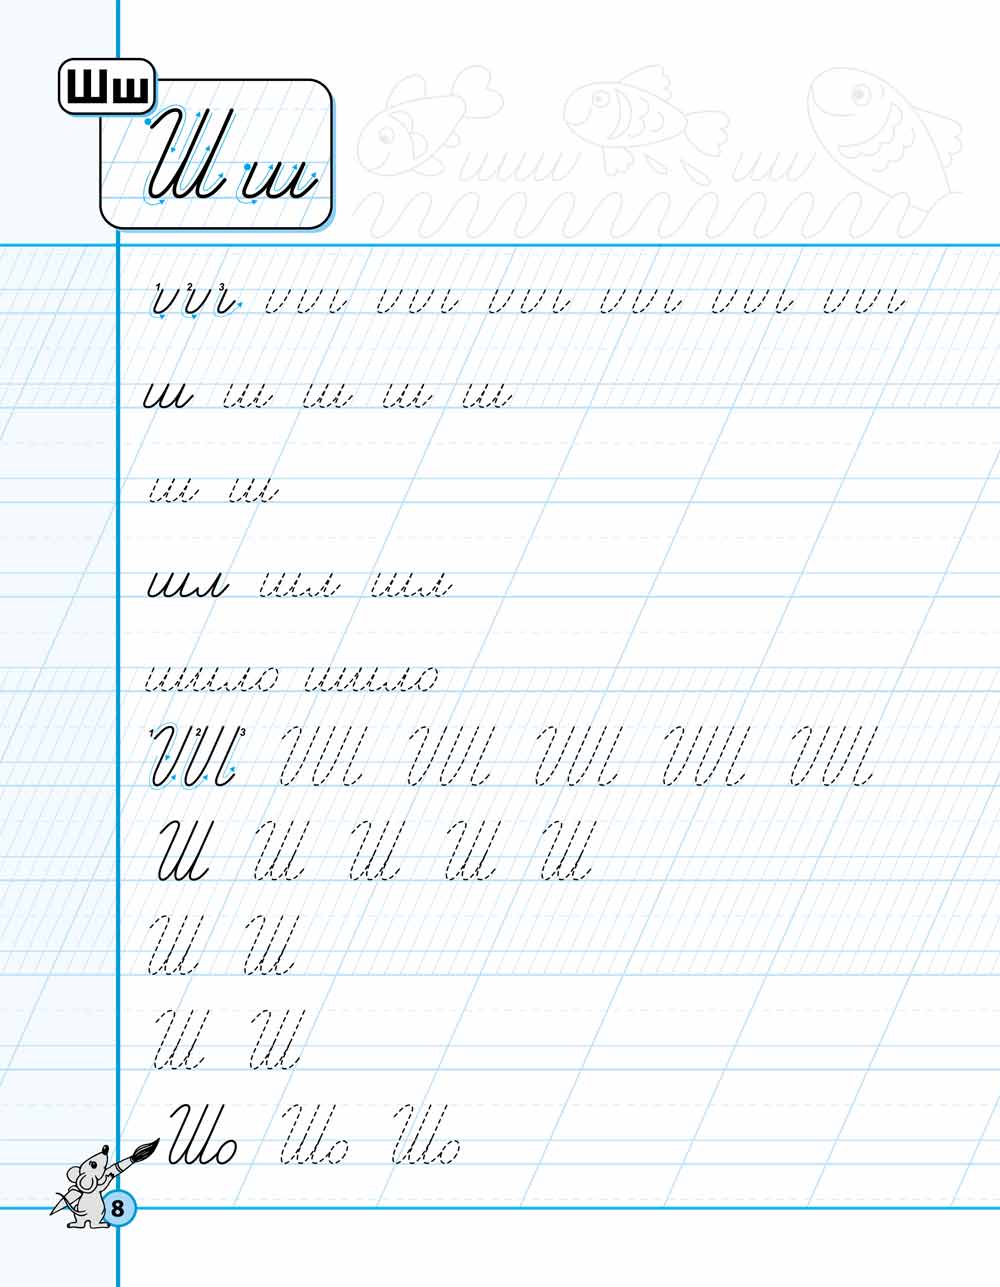 Шш
Ш ш
1 2 3
ш ш ш ш ш
ш ш
шл шл шл
шило шило
1 2 3
Ш Ш Ш Ш Ш
Ш Ш
Ш Ш
Шо Шо Шо
8